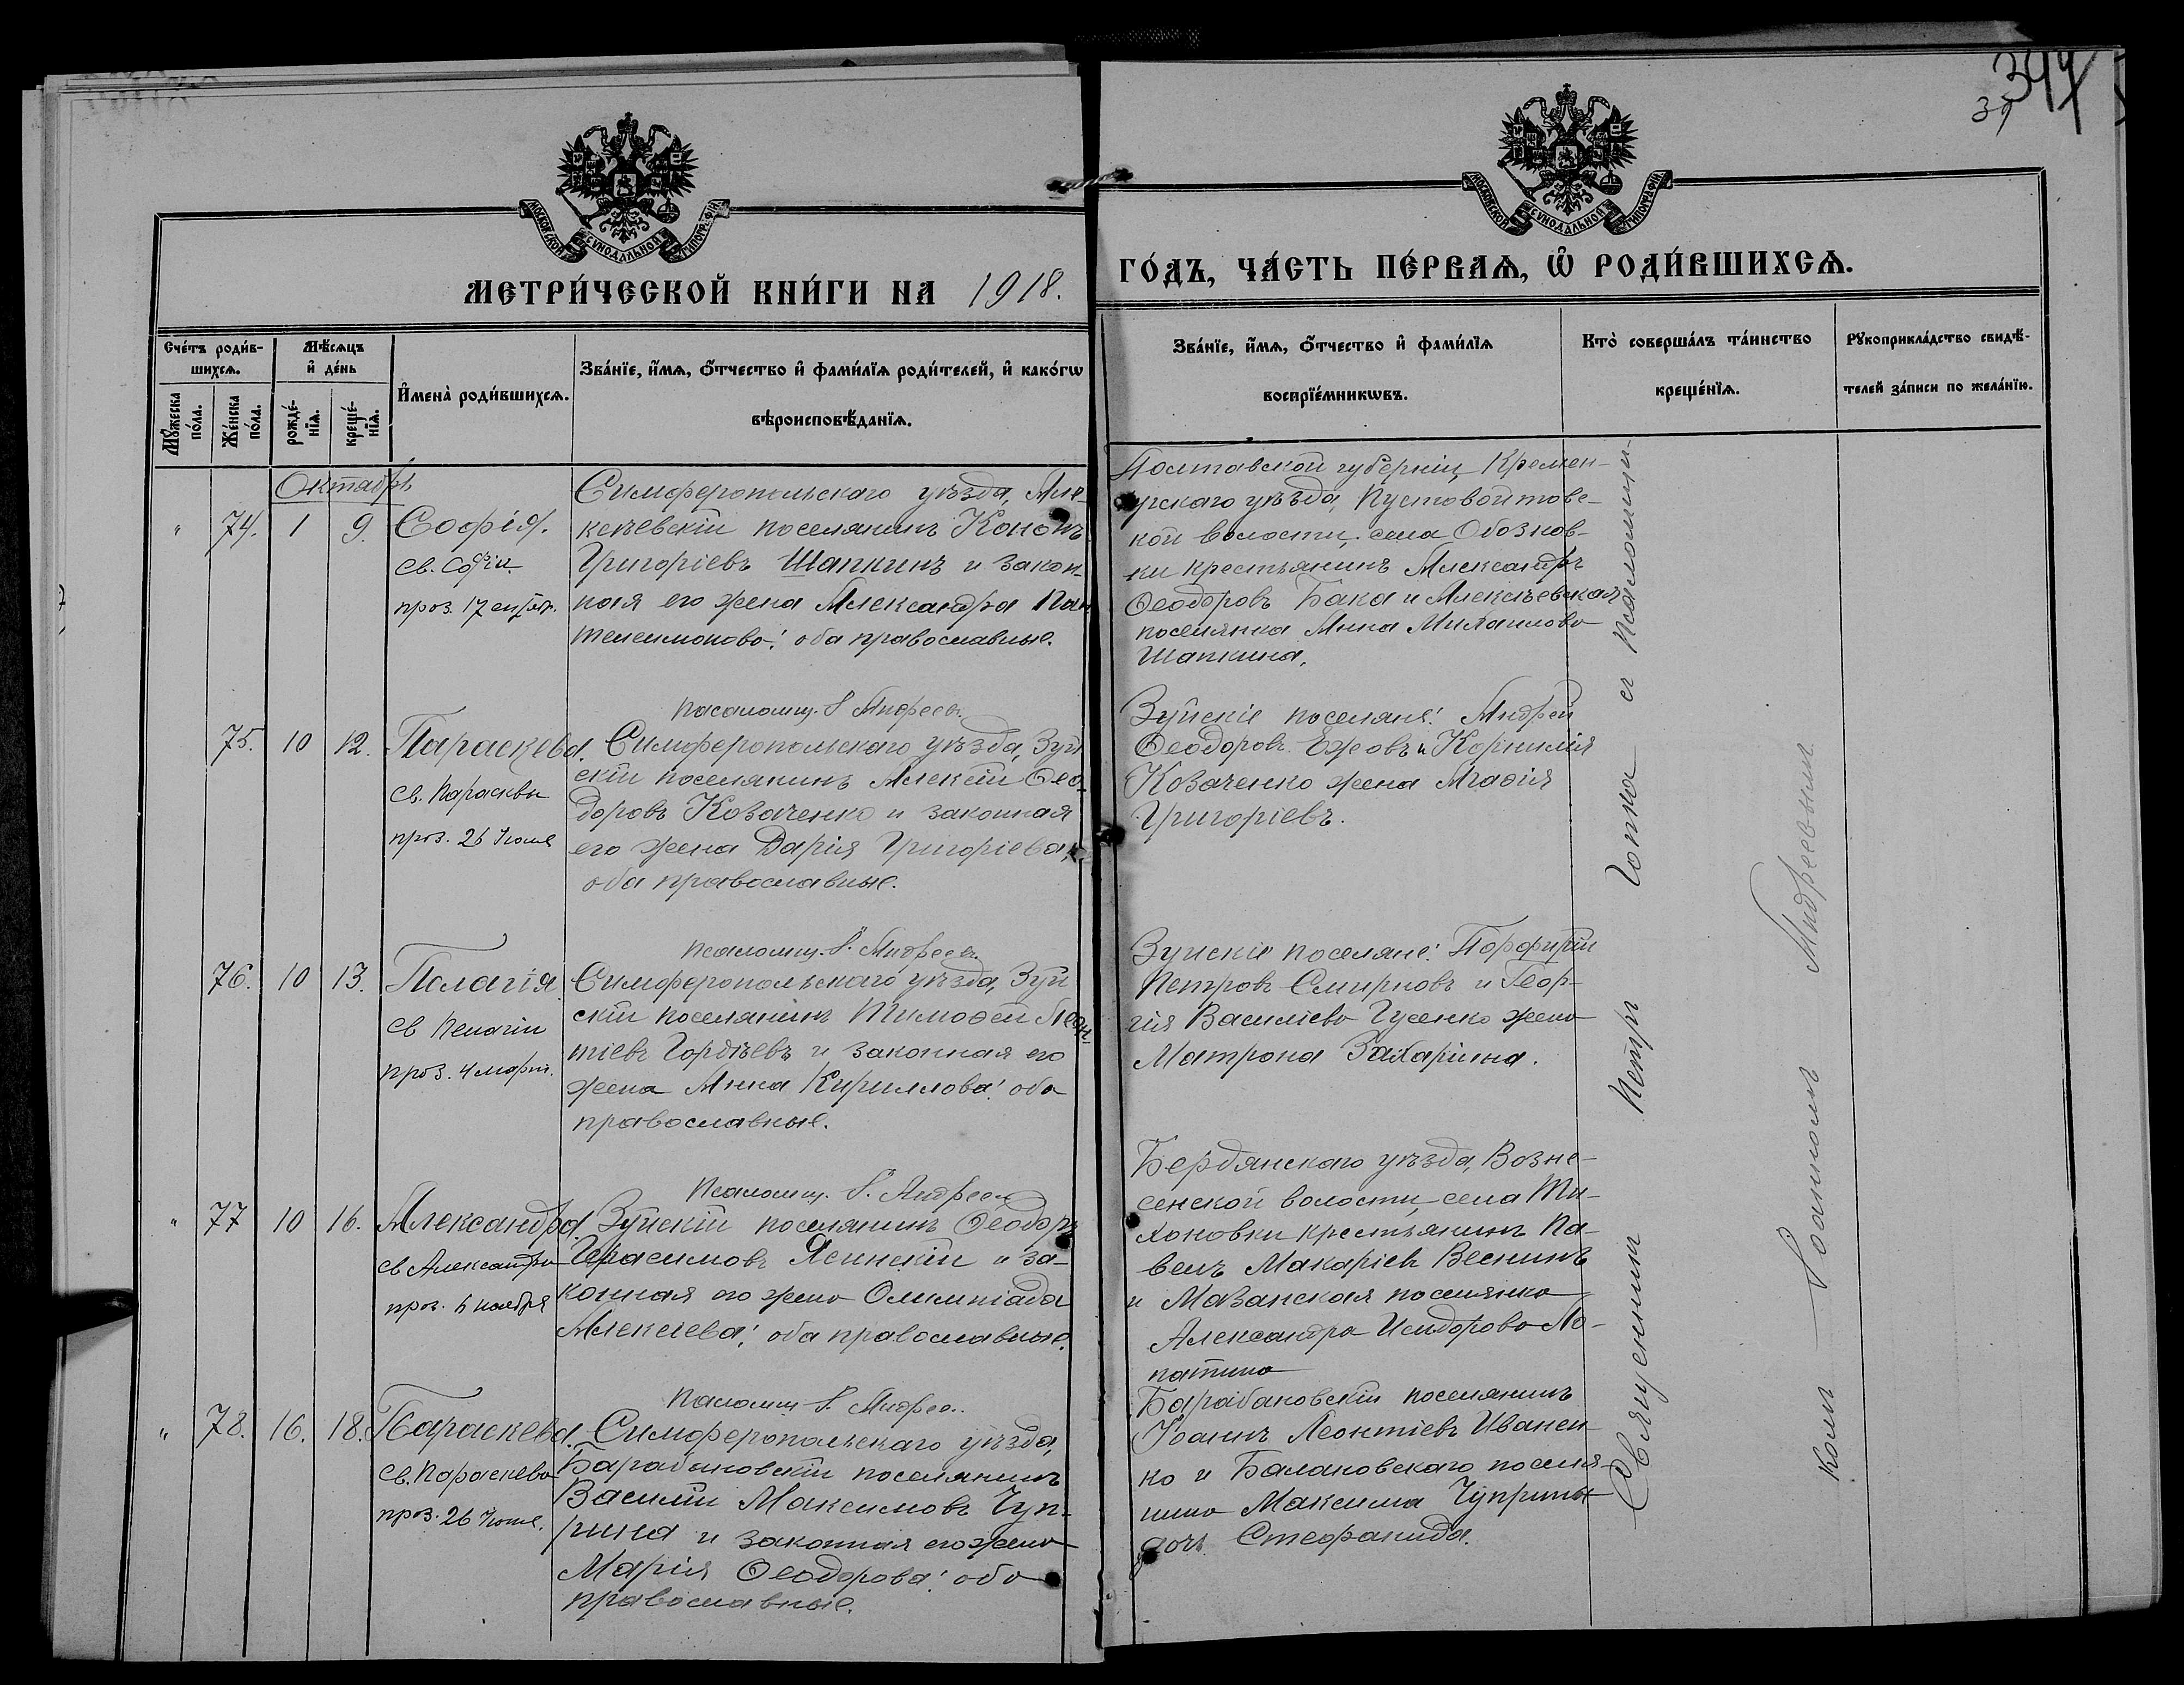 344
39
МОСКОВСКОЙ СѴНОДАЛЬНОЙ ТИПОГРАФІИ
МОСКОВСКОЙ СѴНОДАЛЬНОЙ ТИПОГРАФІИ
МЕТРИ́ЧЕСКОЙ КНИ́ГИ НА 1918.
ГО́ДЪ, ЧА́СТЬ ПЕ́РВАѦ, Ѽ РОДИ́ВШИХСѦ.
Сче́тъ роди́в-
шихсѧ.
Мꙋ́жеска
по́ла.
Же́нска
по́ла.
Мѣ́сѧцъ
и҆ де́нь
рожде́-
нїѧ.
креще́-
нїѧ.
И҆мена̀ роди́вшихсѧ.
Зва́нїе, и҆́мѧ, ѻ҆́тчество и҆ фами́лїѧ роди́телей, и҆ како́гѡ
вѣроисповѣ́данїѧ.
Зва́нїе, и҆́мѧ, ѻ҆́тчество и҆ фами́лїѧ
воспрїе́мникѡвъ.
Кто̀ соверша́лъ та́инство
креще́нїѧ.
Рꙋкоприкла́дство свидѣ́-
телей за́писи по жела́нїю.
Октябрь
" 74. 1 9.
Софія.
св. Софіи
проз. 17 сентяб.
Симферопольскаго уѣзда, Але-
ксѣевскій поселянинъ Кононъ
Григоріевъ Шапкинъ и закон-
ная его жена Александра Пан
телеимонова: оба православные.
Полтавской губерніи, Кремен-
чугскаго уѣзда, Пустовойтовс-
кой волости, села Обознов-
ки крестьянинъ Александръ
Ѳеодоровъ Бака и Алексѣевская
поселянка Анна Михаилова
Шапкина.
псаломщ. І. Андреев.
75. 10 12.
Параскева.
св. Парасквы
проз. 26 Іюля
Симферопольскаго уѣзда, Зуй
скій поселянинъ Алексій Ѳео-
доровъ Козаченко и законная
его жена Дарія Григоріева,
оба православные.
Зуйскіе поселяне: Андрей
Ѳеодоровъ Ежовъ и Корнилія
Козаченко жена Агаѳія
Григоріевъ.
псаломщ. І. Андреев.
76. 10 13.
Пелагія
св Пелагіи
проз. 4 мая
Симферопольскаго уѣзда, Зуй
скій поселянинъ Тимоѳей Леон
тіевъ Гордѣевъ и законная его
жена Анна Кириллова: оба
православные.
Зуйскіе поселяне: Порфирій
Петровъ Смирновъ и Геор-
гія Василіева Гусенко жена
Матрона Захаріина.
Псаломщ. І. Андреев
" 77 10 16.
Александра.
св Александры
проз. 6 ноября
Зуйскій поселянинъ Ѳеодоръ
Герасимовъ Ясинскій и за-
конная его жена Олимпіада
Алексіева: оба православные.
Бердянскаго уѣзда, Возне-
сенской волости, села Ти-
хоновки крестьянинъ Па-
велъ Макаріевъ Веснинъ
и Мазанская поселянка
Александра Исидорова Ло-
патина
Псаломщ І. Андрее.
" 78. 16. 18.
Параскева.
св. Параскева
проз. 26 Іюля.
Симферопольскаго уѣзда,
Барабановскій поселянинъ
Василій Максимовъ Чуп-
рина и законная его жена
Марія Ѳеодорова: оба
православные.
Барабановскій поселянинъ
Іоаннъ Леонтіевъ Иванен-
ко и Балановскаго поселя-
нина Максима Чуприны
дочь Стефанида.
Священникъ Петръ Гопка съ Псаломщи-
комъ Іоанномъ Андреевымъ